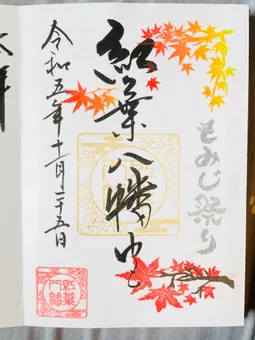 もみじ祭り
紅葉八幡宮
令和五年十一月二十五日
紅葉
八幡